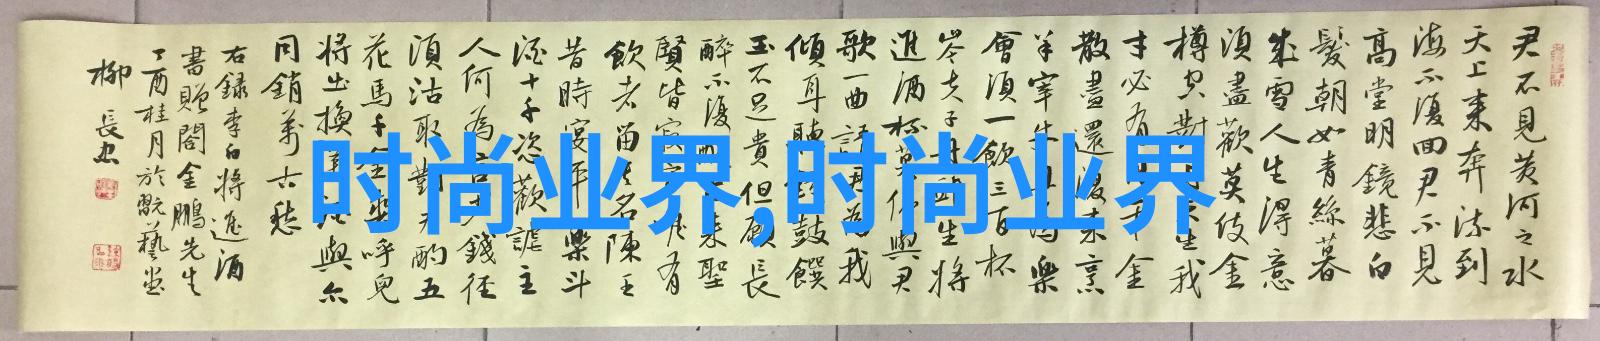 君不見黃河之水
天上来奔流到
海不復回君不見
高堂明鏡悲白
髮朝如青絲暮
成雪人生得意
須盡歡莫使金
樽空對月天生我
才必有用千金
散盡還復来烹
羊宰牛且為樂
會須一飲三百杯
岑夫子丹丘生將
進酒杯莫停與君
歌一曲請君為我
傾耳聽鼓饌
玉不足貴但願長
醉不復醒来聖
賢皆寂寞有
飲者留其名陳王
昔時宴平樂斗
酒十千恣歡謔主
人何為言少錢径
須沽取對君酌五
花馬千金裘呼兒
將出換美酒與尔
同銷萬古愁
右録李白將進酒
書贈閣金鵬先生
丁酉桂月於翫藝堂
柳長忠
时尚业界,时尚业界